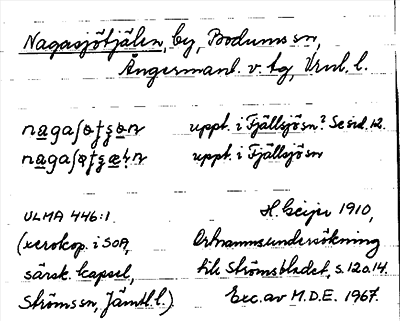 Nagasjötjälen, by, Bodums sn,
Ångermanl. v. tg, Vrnl. l.
uppt. i Fjällsjö sn? Se s.d. 12.
uppt. i Fjällsjö sn
ULMA 446:1. H. Geijer 1910,
(xerokop. i SOA, Ortnamnsundersökning
särsk. kapsel, till Strömsbladet, s. 12 o. 14.
Ströms sn, Jämtl. l.) Exc. av M.D.E. 1967.